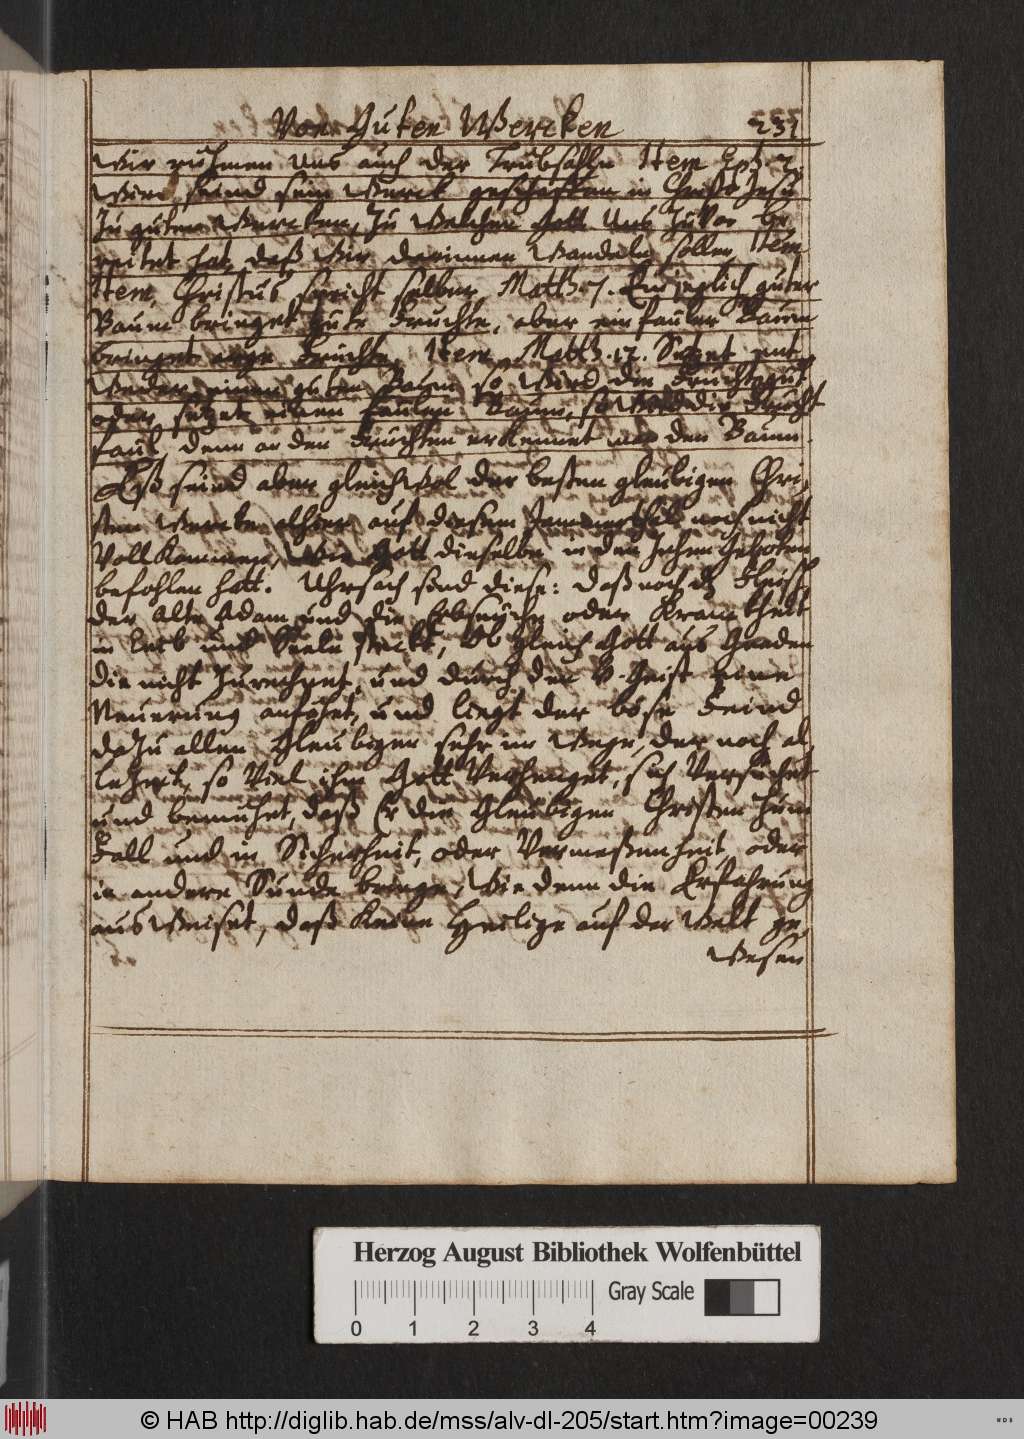 Von Guten Wercken 231
Wir ruhmen uns auch der Trubsalln Item Eph. 2.
Wir seind sein Werck geschaffen in Christo Jesu
Zu guten Wercken, Zu Welchen Gott Uns Zuvor be
reitet hat, daß Wir darinnen Wandeln sollen, Item
Item, Christus spricht selber Matth. 7. Ein jeglich guter
Baum bringet gute Fruchte, aber ein fauler Baum
bringet arge Fruchte. Item Matth. 12. Setzet ent
Weder einen guten Baum so Wird die Frucht gut
oder setzet einen faulen Baum, so Wird die Frucht
faul, denn an den Fruchten erkennet man den Baum.
Eß seind aber gleichwol der besten gleubigen Chri,
sten Wercke alhier auf diesem Jammerthal noch nicht
Vollkommen, Wie Gott dieselbe in den Zehen Geboten
befohlen hatt. Uhrsach sind diese: daß noch dz Fleisch
der alte Adam und die Erbseuche oder Kranckheit
in Leib und Seele steckt, Ob gleich Gott aus Gnaden
die nicht Zurechnet, und durch den H. Geist eine
Neuerung anfahet, und liegt der böse Feind
daZu allen Gleubigen sehr im Wege, der noch al,
leZeit, so Viel ihm Gott Verhenget, sich Versuchet
und bemuhet, daß Er die Gleubigen Christen Zum
Fall und in Sicherheit, oder Vermeßenheit oder
in andere Sunde bringe, Wie denn die Erfahrung
ausWeiset, daß Keine Heilige auf der Welt ge,
Wesen
Herzog August Bibliothek Wolfenbüttel
Gray Scale
0 1 2 3 4
© HAB http://diglib.hab.de/mss/alv-dl-205/start.htm?image=00239